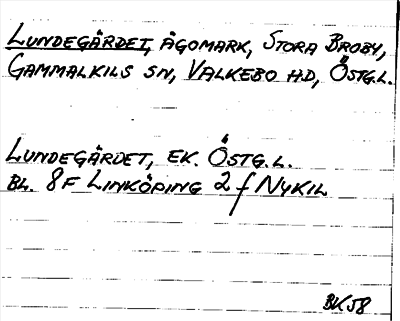 LUNDEGÄRDET, ÄGOMARK, STORA BROBY,
GAMMALKILS SN, VALKEBO HD, ÖSTG.L.
LUNDEGÄRDET, EK. ÖSTG.L.
BL. 8F LINKÖPING 2 f NYKIL
BK 58